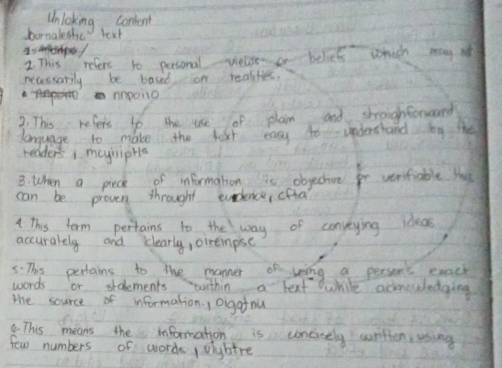 Unloking content
Journalestic text
2. This refers to personal views or beliefs which may not
necessarily be based on realities.
nnpoiio
2. This refers to the use of plain and straighforward
language to make the text easy to understand by the
readers,
3. When a piece of information is objective or verifiable that
can be proven throught evidence, cfta
4. This term pertains to the way of conveying ideas
accurately and clearly, oireinpsc
5. This pertains to the manner of using a person's exact
words or statements within a text while acknowledging
the source of information,
6. This means the information is concisely written, using
few numbers of words,